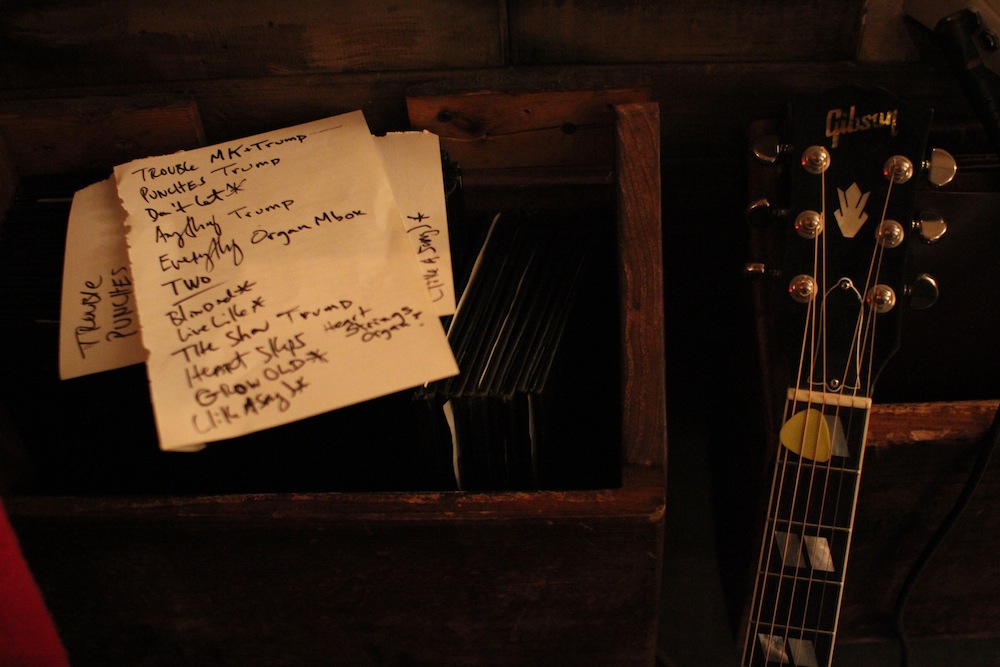 TROUBLE MK+Trump
PUNCHES Trump
Don't Let *
Anything Trump
Everything Organ Mbox
TWO
Blinded *
Live Like *
The Show Trump
Heart Skips Heart Strings
Organ
GROW OLD *
Like A Song *
TROUBLE
PUNCHES
Like A Song *
Gibson